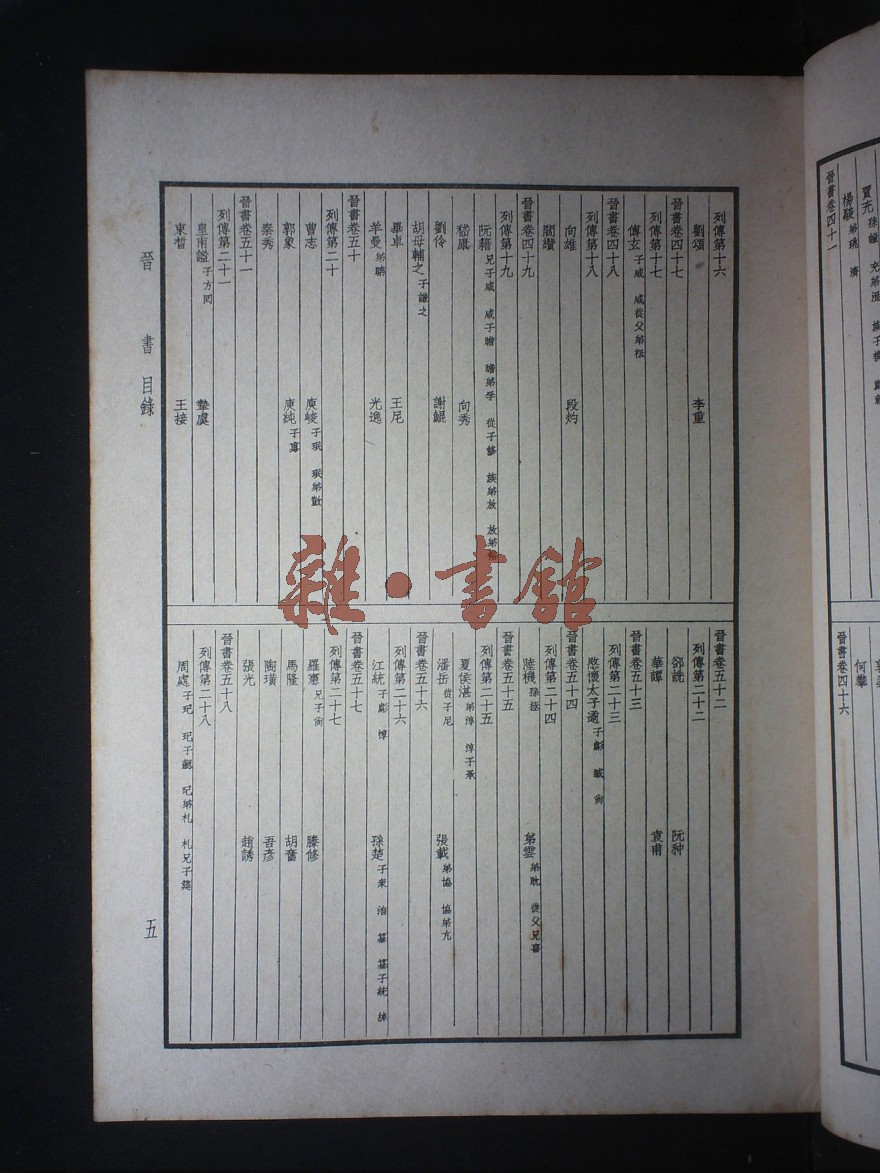 列傳第十六
劉頌 李重
晉書卷四十七
列傳第十七
傅玄 子咸 咸從父弟祗
晉書卷四十八
列傳第十八
向雄 段灼
閻纘
晉書卷四十九
列傳第十九
阮籍 兄子咸 咸子瞻 瞻弟孚 從子修 族弟放 放弟裕
嵇康 向秀
劉伶 謝鯤
胡母輔之 子謙之
畢卓 王尼
羊曼 弟聃 光逸
晉書卷五十
列傳第二十
曹志 庾峻 子珉 珉弟敳
郭象 庾純 子旉
秦秀
晉書卷五十一
列傳第二十一
皇甫謐 子方回 摯虞
束皙 王接
晉書卷五十二
列傳第二十二
郤詵 阮种
華譚 袁甫
晉書卷五十三
列傳第二十三
愍懷太子遹 子虨 臧 尚
晉書卷五十四
列傳第二十四
陸機 孫拯 弟雲 弟耽 從父兄喜
晉書卷五十五
列傳第二十五
夏侯湛 弟淳 淳子承
潘岳 從子尼 張載 弟協 協弟亢
晉書卷五十六
列傳第二十六
江統 子虨 惇 孫楚 子眾 洵 纂 纂子統 綽
晉書卷五十七
列傳第二十七
羅憲 兄子尚 滕修
馬隆 胡奮
陶璜 吾彥
張光 趙誘
晉書卷五十八
列傳第二十八
周處 子玘 玘子勰 玘弟札 札兄子莚
晉書 目錄
五
雜·書館
賈充 孫謐 充弟混
楊駿 弟珧 濟
晉書卷四十一
何攀
晉書卷四十六